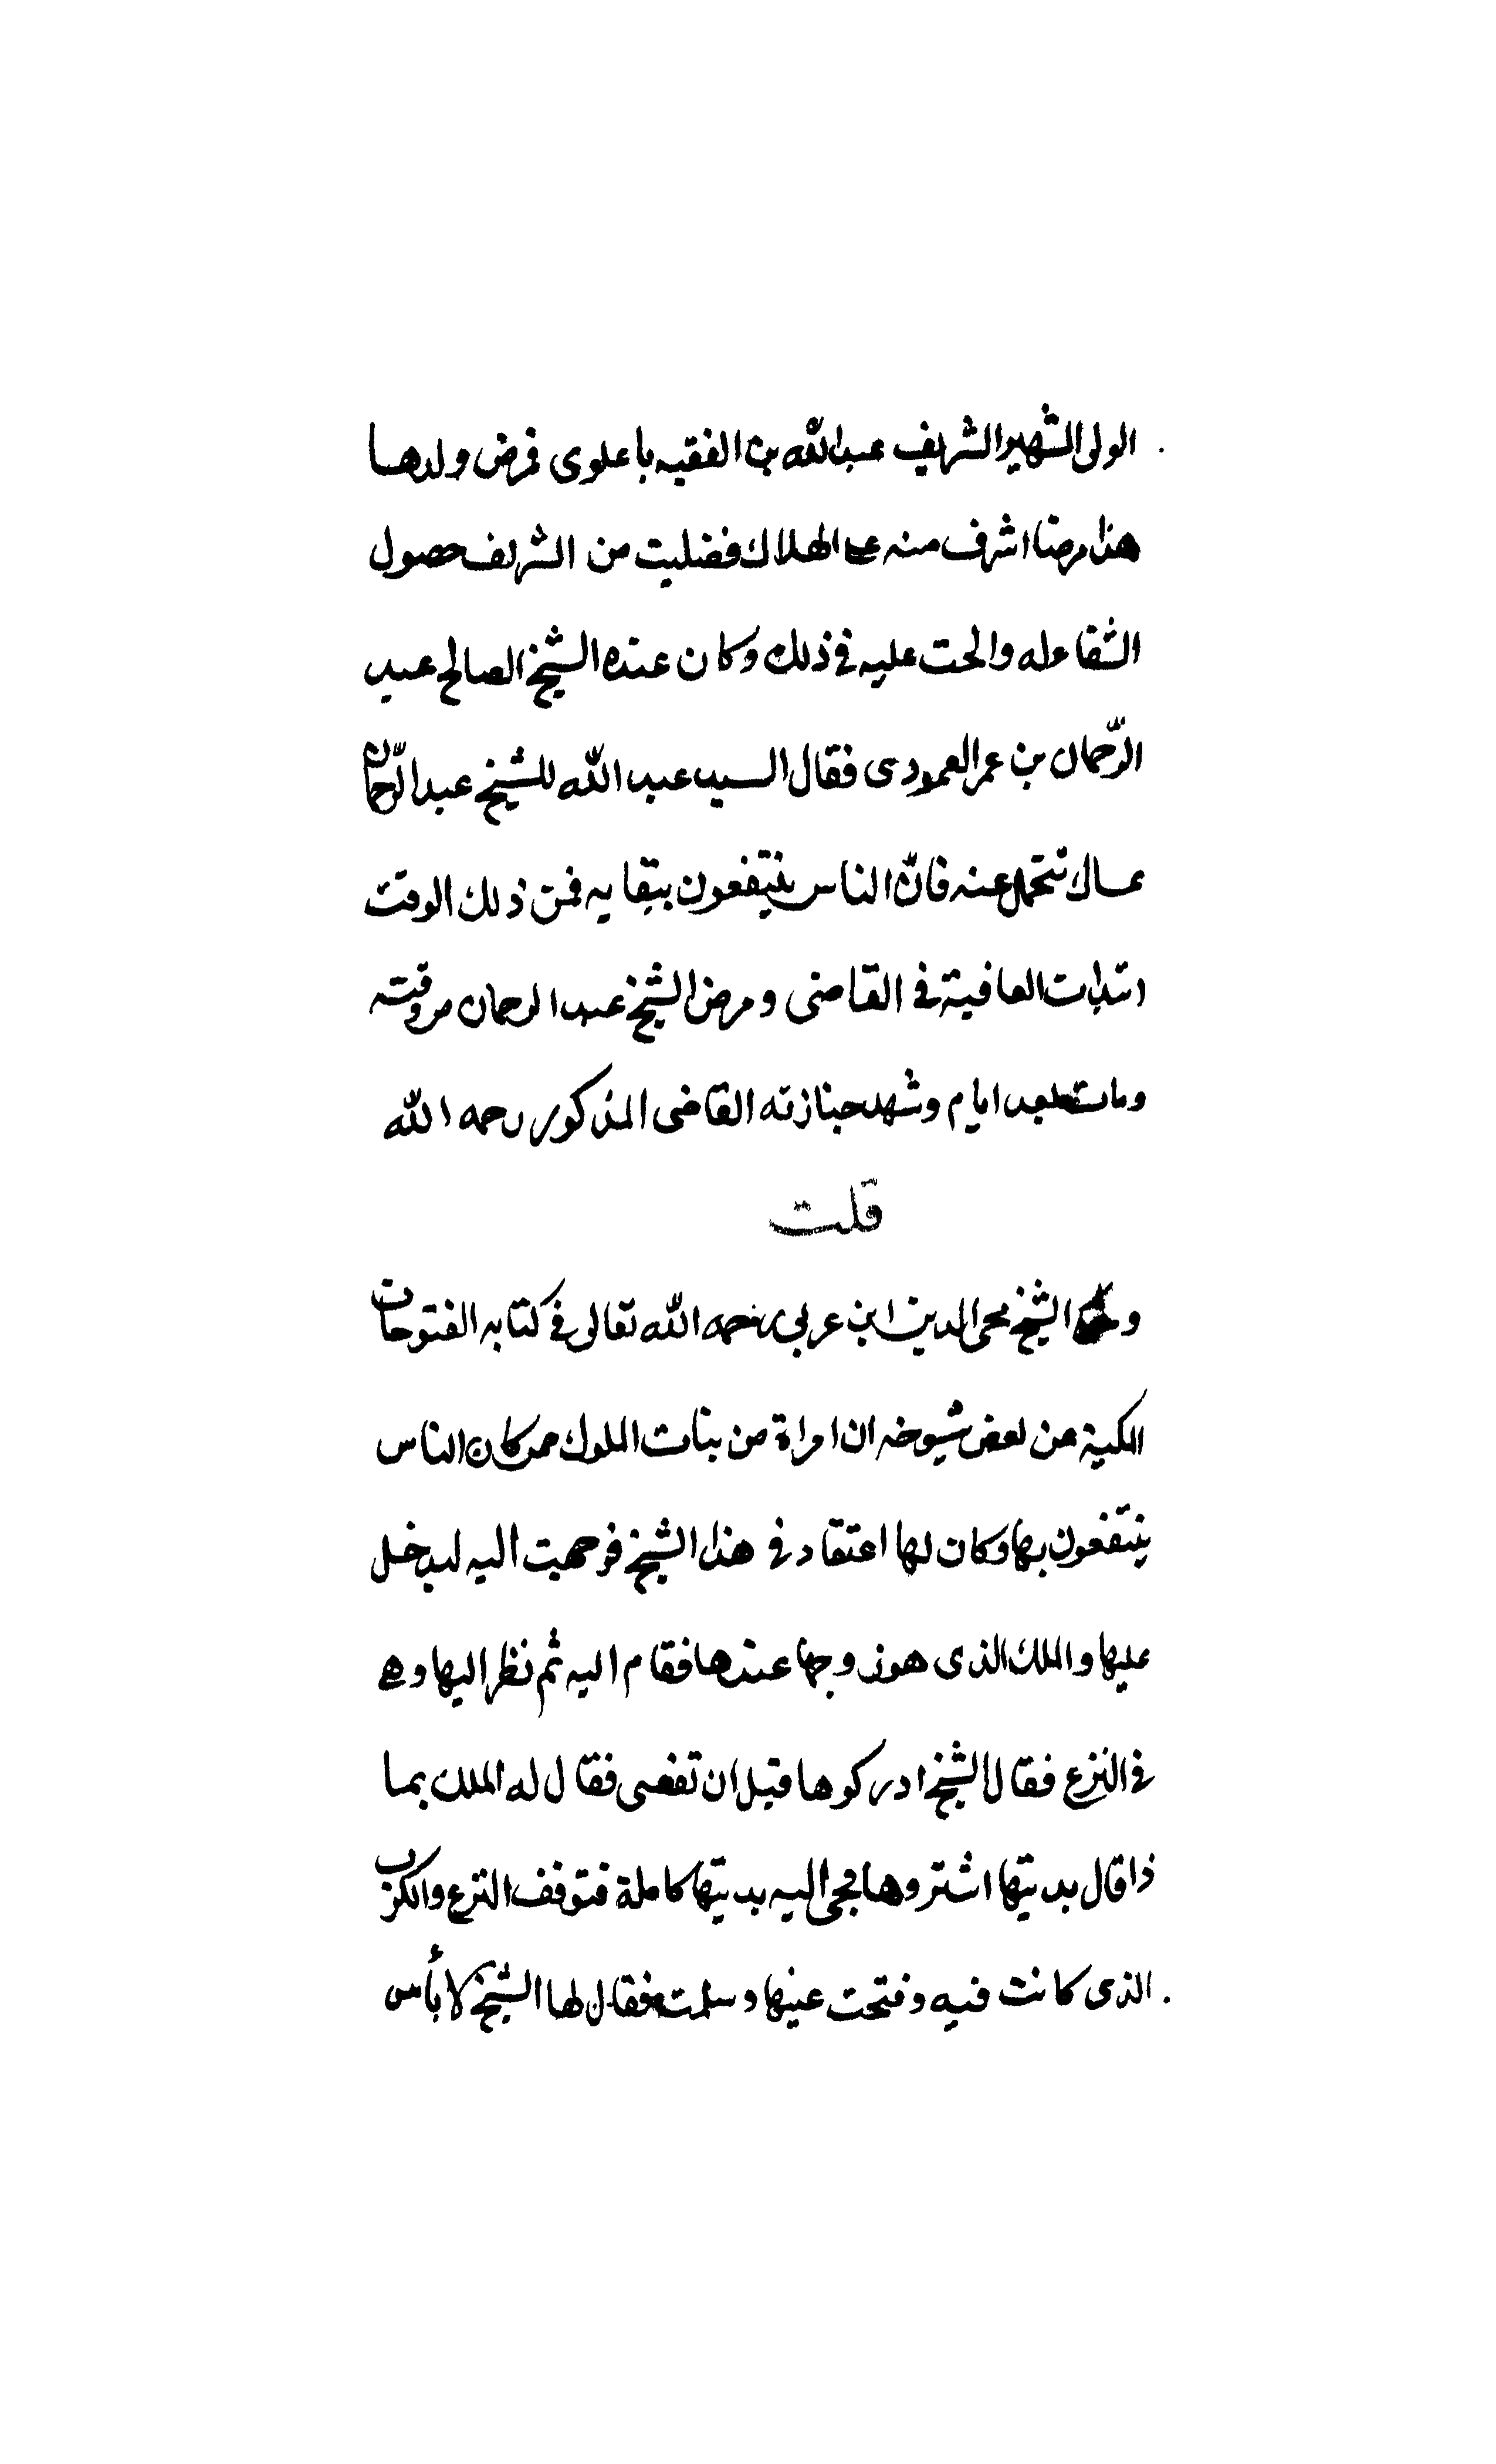 الولى الشهير الشريف عبدالله بن الفقيه باعلوى فمرض ولدها
هذا مرضا اشرف منه على الهلاك فطلبت من الشريف حصول
الشفا له والحت عليه فى ذلك وكان عنده الشيخ الصالح عبد
الرّحمان بن عمر العمودى فقال السيد عبد الله للشيخ عبد الرّحمان
بمالك تتحمل عنه فانّ الناس ينتفعون ببقايه فمن ذلك الوقت
ابتدات العافية فى القاضى ومرض الشيخ عبد الرحمان من وقته
ومات بعد ايام وشهد جنازته القاضى المذكور رحمه الله
قلت
وحكا الشيخ محى الدين ابن عربى رحمه الله تعالى فى كتابه الفتوحات
المكية عن بعض شيوخه ان امراة من بنات الملوك ممن كان الناس
ينتفعون بها وكان لها اعتقاد فى هذا الشيخ فوجهت اليه ليدخل
عليها والملك الذى هو زوجها عندها فقام اليه ثم نظر اليها وهى
فى النزع فقال الشيخ ادركوها قبل ان تقضى فقال له الملك بما
ذا قال بديتها اشتروها فجى اليه بديتها كاملة فتوقف النزع والكرب
الذى كانت فيه وفتحت عينها وسلمت فقال لها الشيخ لا بأس